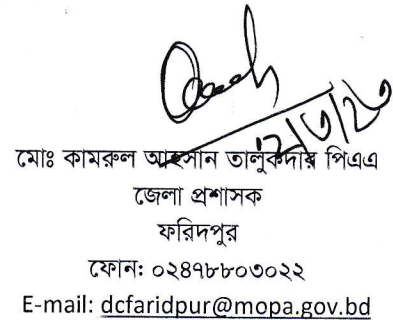 মোঃ কামরুল আহসান তালুকদার পিএএ
জেলা প্রশাসক
ফরিদপুর
ফোন: ০২৪৭৮৮০৩০২২
E-mail: dcfaridpur@mopa.gov.bd